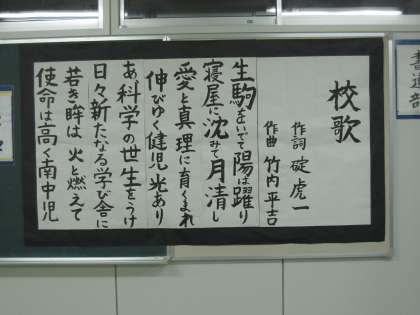 校歌
作詞 碇虎一
作曲 竹内平吉
生駒をいでて陽は躍り
寝屋に沈みて月清し
愛と真理に育くまれ
伸びゆく健児光あり
あゝ科学の世に生をうけ
日々新たなる学び舎に
若き眸は火と燃えて
使命は高く南中児
書道部